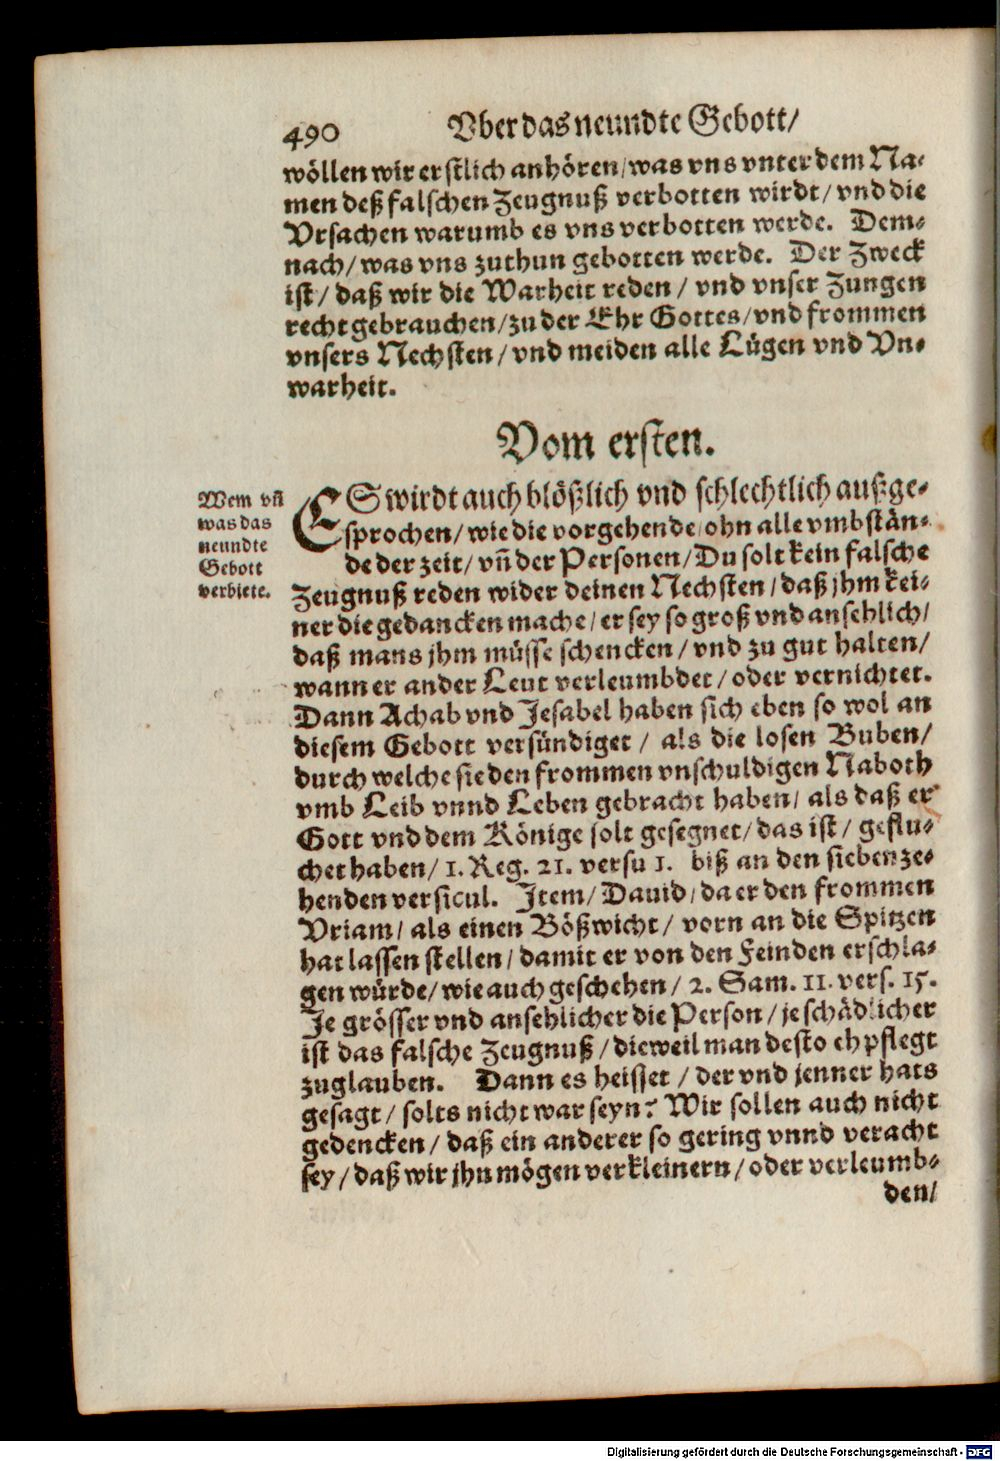 490 Vber das neundte Gebott/
wöllen wir erstlich anhören/was vns vnter dem Na-
men deß falschen Zeugnuß verbotten wirdt/vnd die
Vrsachen warumb es vns verbotten werde. Dem-
nach/was vns zuthun gebotten werde. Der Zweck
ist/daß wir die Warheit reden/vnd vnser Zungen
recht gebrauchen/zu der Ehr Gottes/vnd frommen
vnsers Nechsten/vnd meiden alle Lügen vnd Vn-
warheit.
Vom ersten.
Wem vñ
was das
neundte
Gebott
verbiete.
ES wirdt auch blößlich vnd schlechtlich außge-
sprochen/wie die vorgehende/ohn alle vmbstän-
de der zeit/vñ der Personen/Du solt kein falsche
Zeugnuß reden wider deinen Nechsten/daß jhm kei-
ner die gedancken mache/er sey so groß vnd ansehlich/
daß mans jhm müsse schencken/vnd zu gut halten/
wann er ander Leut verleumbdet/oder vernichtet.
Dann Achab vnd Jesabel haben sich eben so wol an
diesem Gebott versündiget/als die losen Buben/
durch welche sie den frommen vnschuldigen Naboth
vmb Leib vnnd Leben gebracht haben/als daß er
Gott vnd dem Könige solt gesegnet/das ist/geflu-
chet haben/1. Reg. 21. versu 1. biß an den siebenze-
henden versicul. Item/Dauid/da er den frommen
Vriam/als einen Bößwicht/vorn an die Spitzen
hat lassen stellen/damit er von den Feinden erschla-
gen würde/wie auch geschehen/2. Sam. 11. vers. 15.
Je grösser vnd ansehlicher die Person/je schädlicher
ist das falsche Zeugnuß/dieweil man desto eh pflegt
zuglauben. Dann es heisset/der vnd jenner hats
gesagt/solts nicht war seyn? Wir sollen auch nicht
gedencken/daß ein anderer so gering vnnd veracht
sey/daß wir jhn mögen verkleinern/oder verleumb-
den/
Digitalisierung gefördert durch die Deutsche Forschungsgemeinschaft - DFG